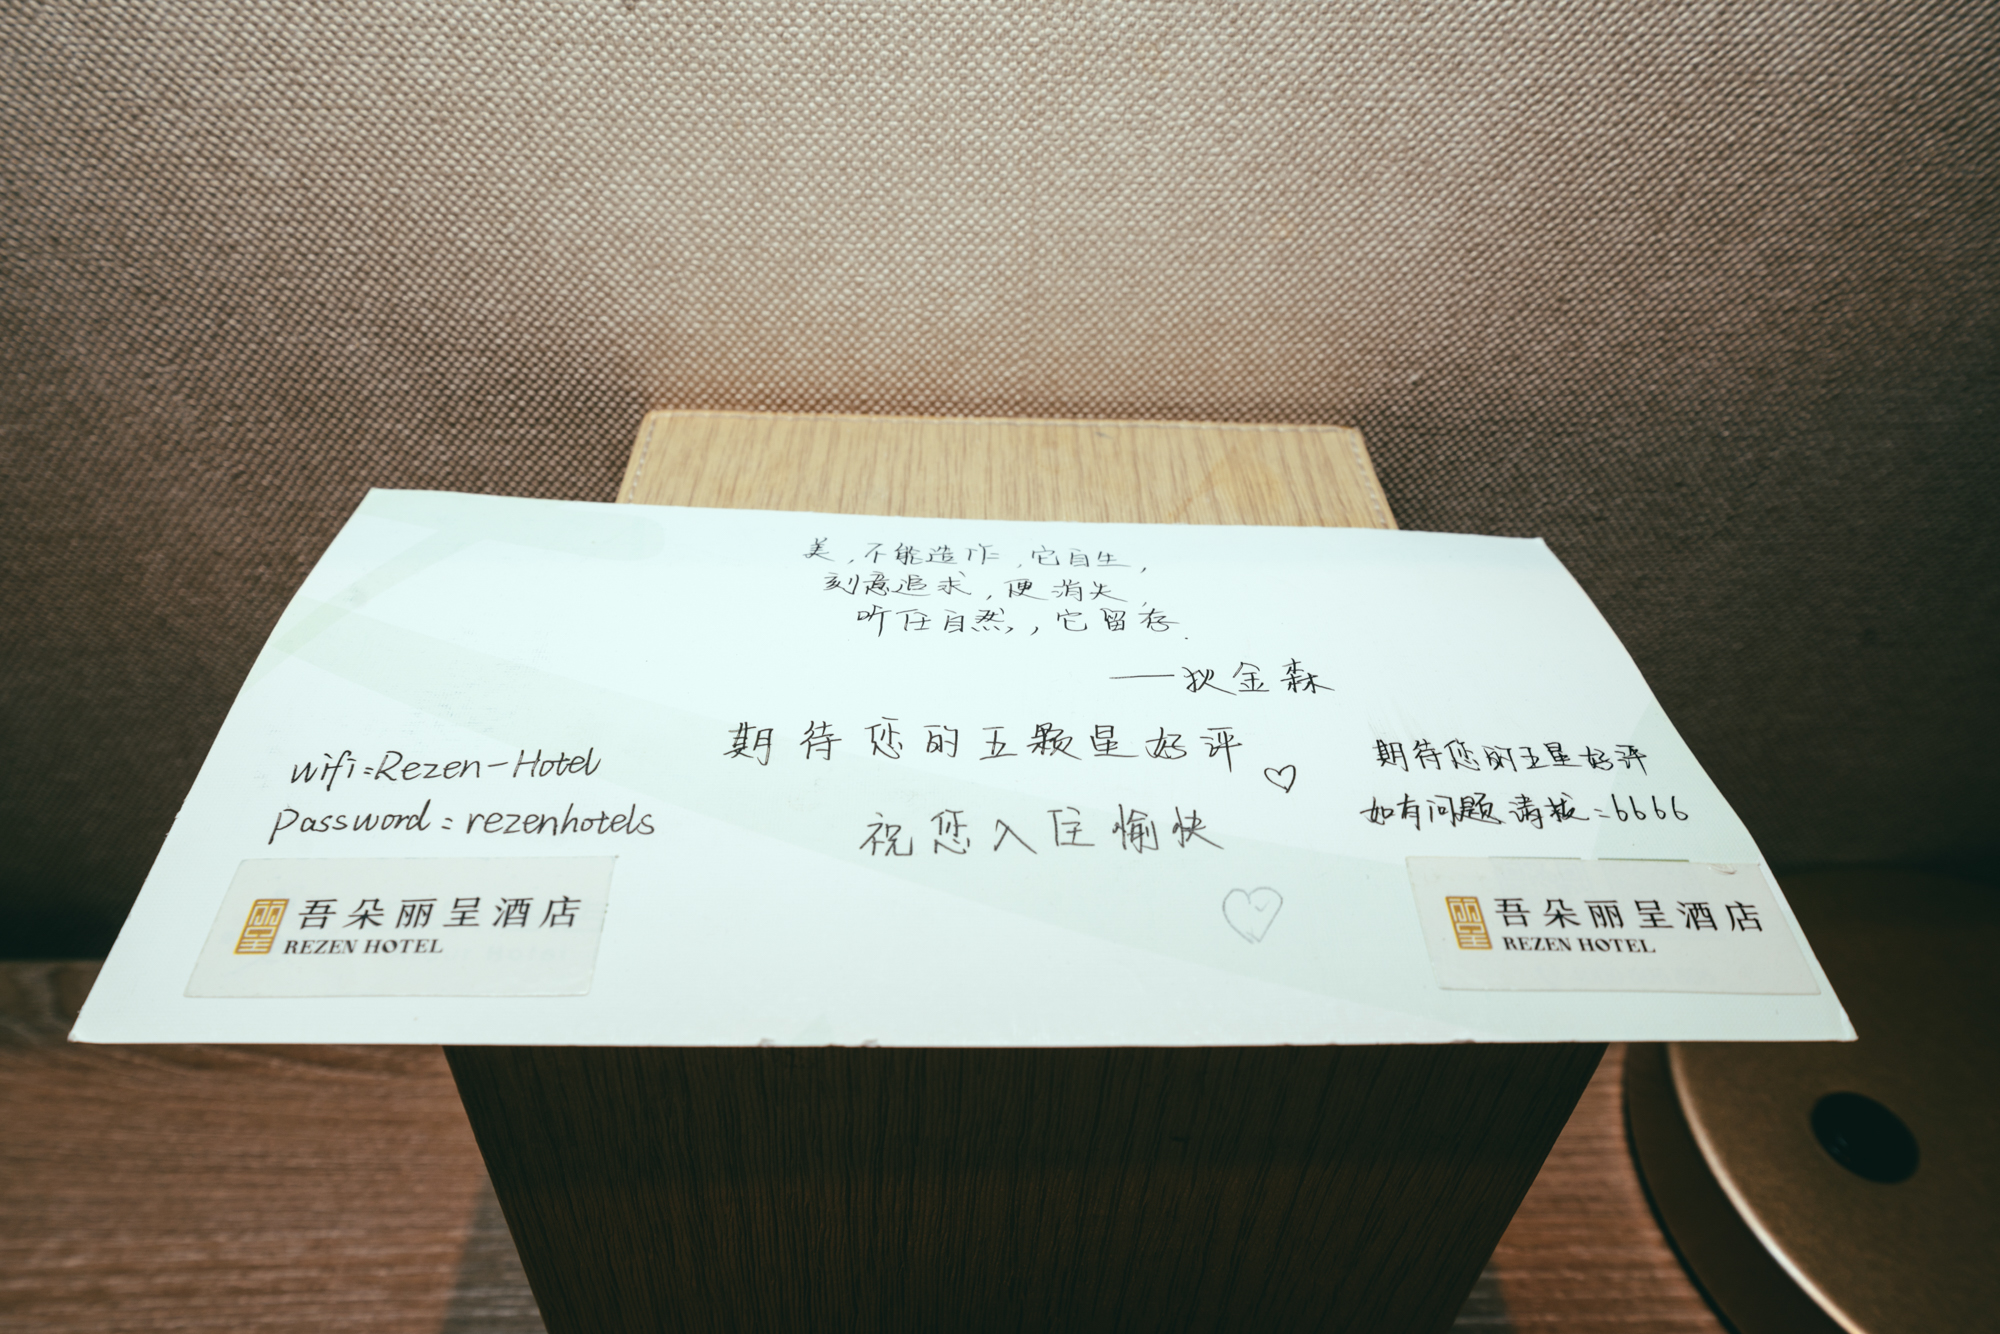 美，不能造作，它自生，
刻意追求，便消失，
听任自然，它留存.
——狄金森
期待您的五颗星好评
祝您入住愉快
wifi:Rezen-Hotel
Password:rezenhotels
吾朵丽呈酒店
REZEN HOTEL
期待您的五星好评
如有问题请拔:6666
丽呈
吾朵丽呈酒店
REZEN HOTEL